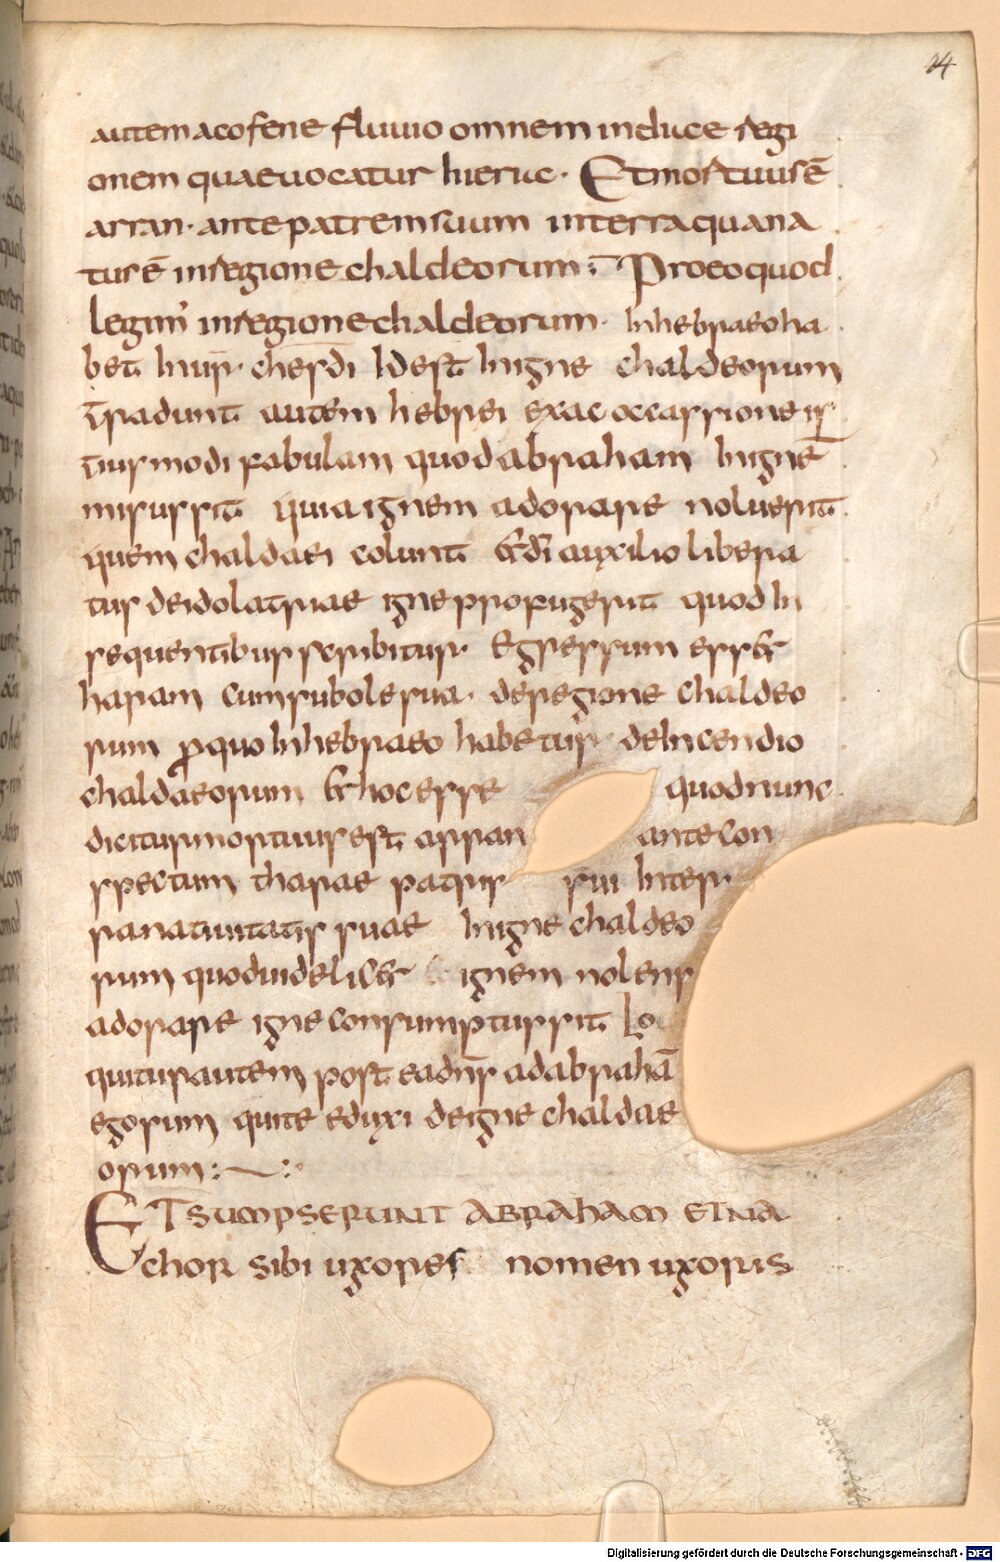 14
autem a cofene fluuio omnem induce regi
onem quae uocatur hieriae · Et mortuus ē
arran · ante patrem suum in terra qua na
tus ē in regione chaldeorum : Pro eo quod
legim' in regione chaldeorum · In hebraeo ha
bet In ur · chesdi Id est In igne chaldeorum
tradunt autem hebrei ex hac occassione is
tius modi fabulam quod abraham In ignē
missus sit quia ignem adorare noluerit
quem chaldaei colunt & dī auxilio libera
tus de idolatriae igne profugerit quod In
sequentibus scribitur · Egressum ess&
haram cum subole sua · de regione chaldeo
rum pro quo In hebraeo habetur de Incendio
chaldaeorum & hoc esse quod nunc
dicitur mortuus est arran ante con
spectum tharae patris sui In terr
ra natiuitatis suae In igne chaldeo
rum quod uidelic& ignem nolens
adorare igne consumptus sit Lo
quitur autem post ea dn̄s ad abrahā
ego sum qui te eduxi de igne chaldae
orum :~:
ET SUMPSERUNT ABRAHAM ET NA
chor sibi uxores nomen uxoris
Digitalisierung gefördert durch die Deutsche Forschungsgemeinschaft - DFG